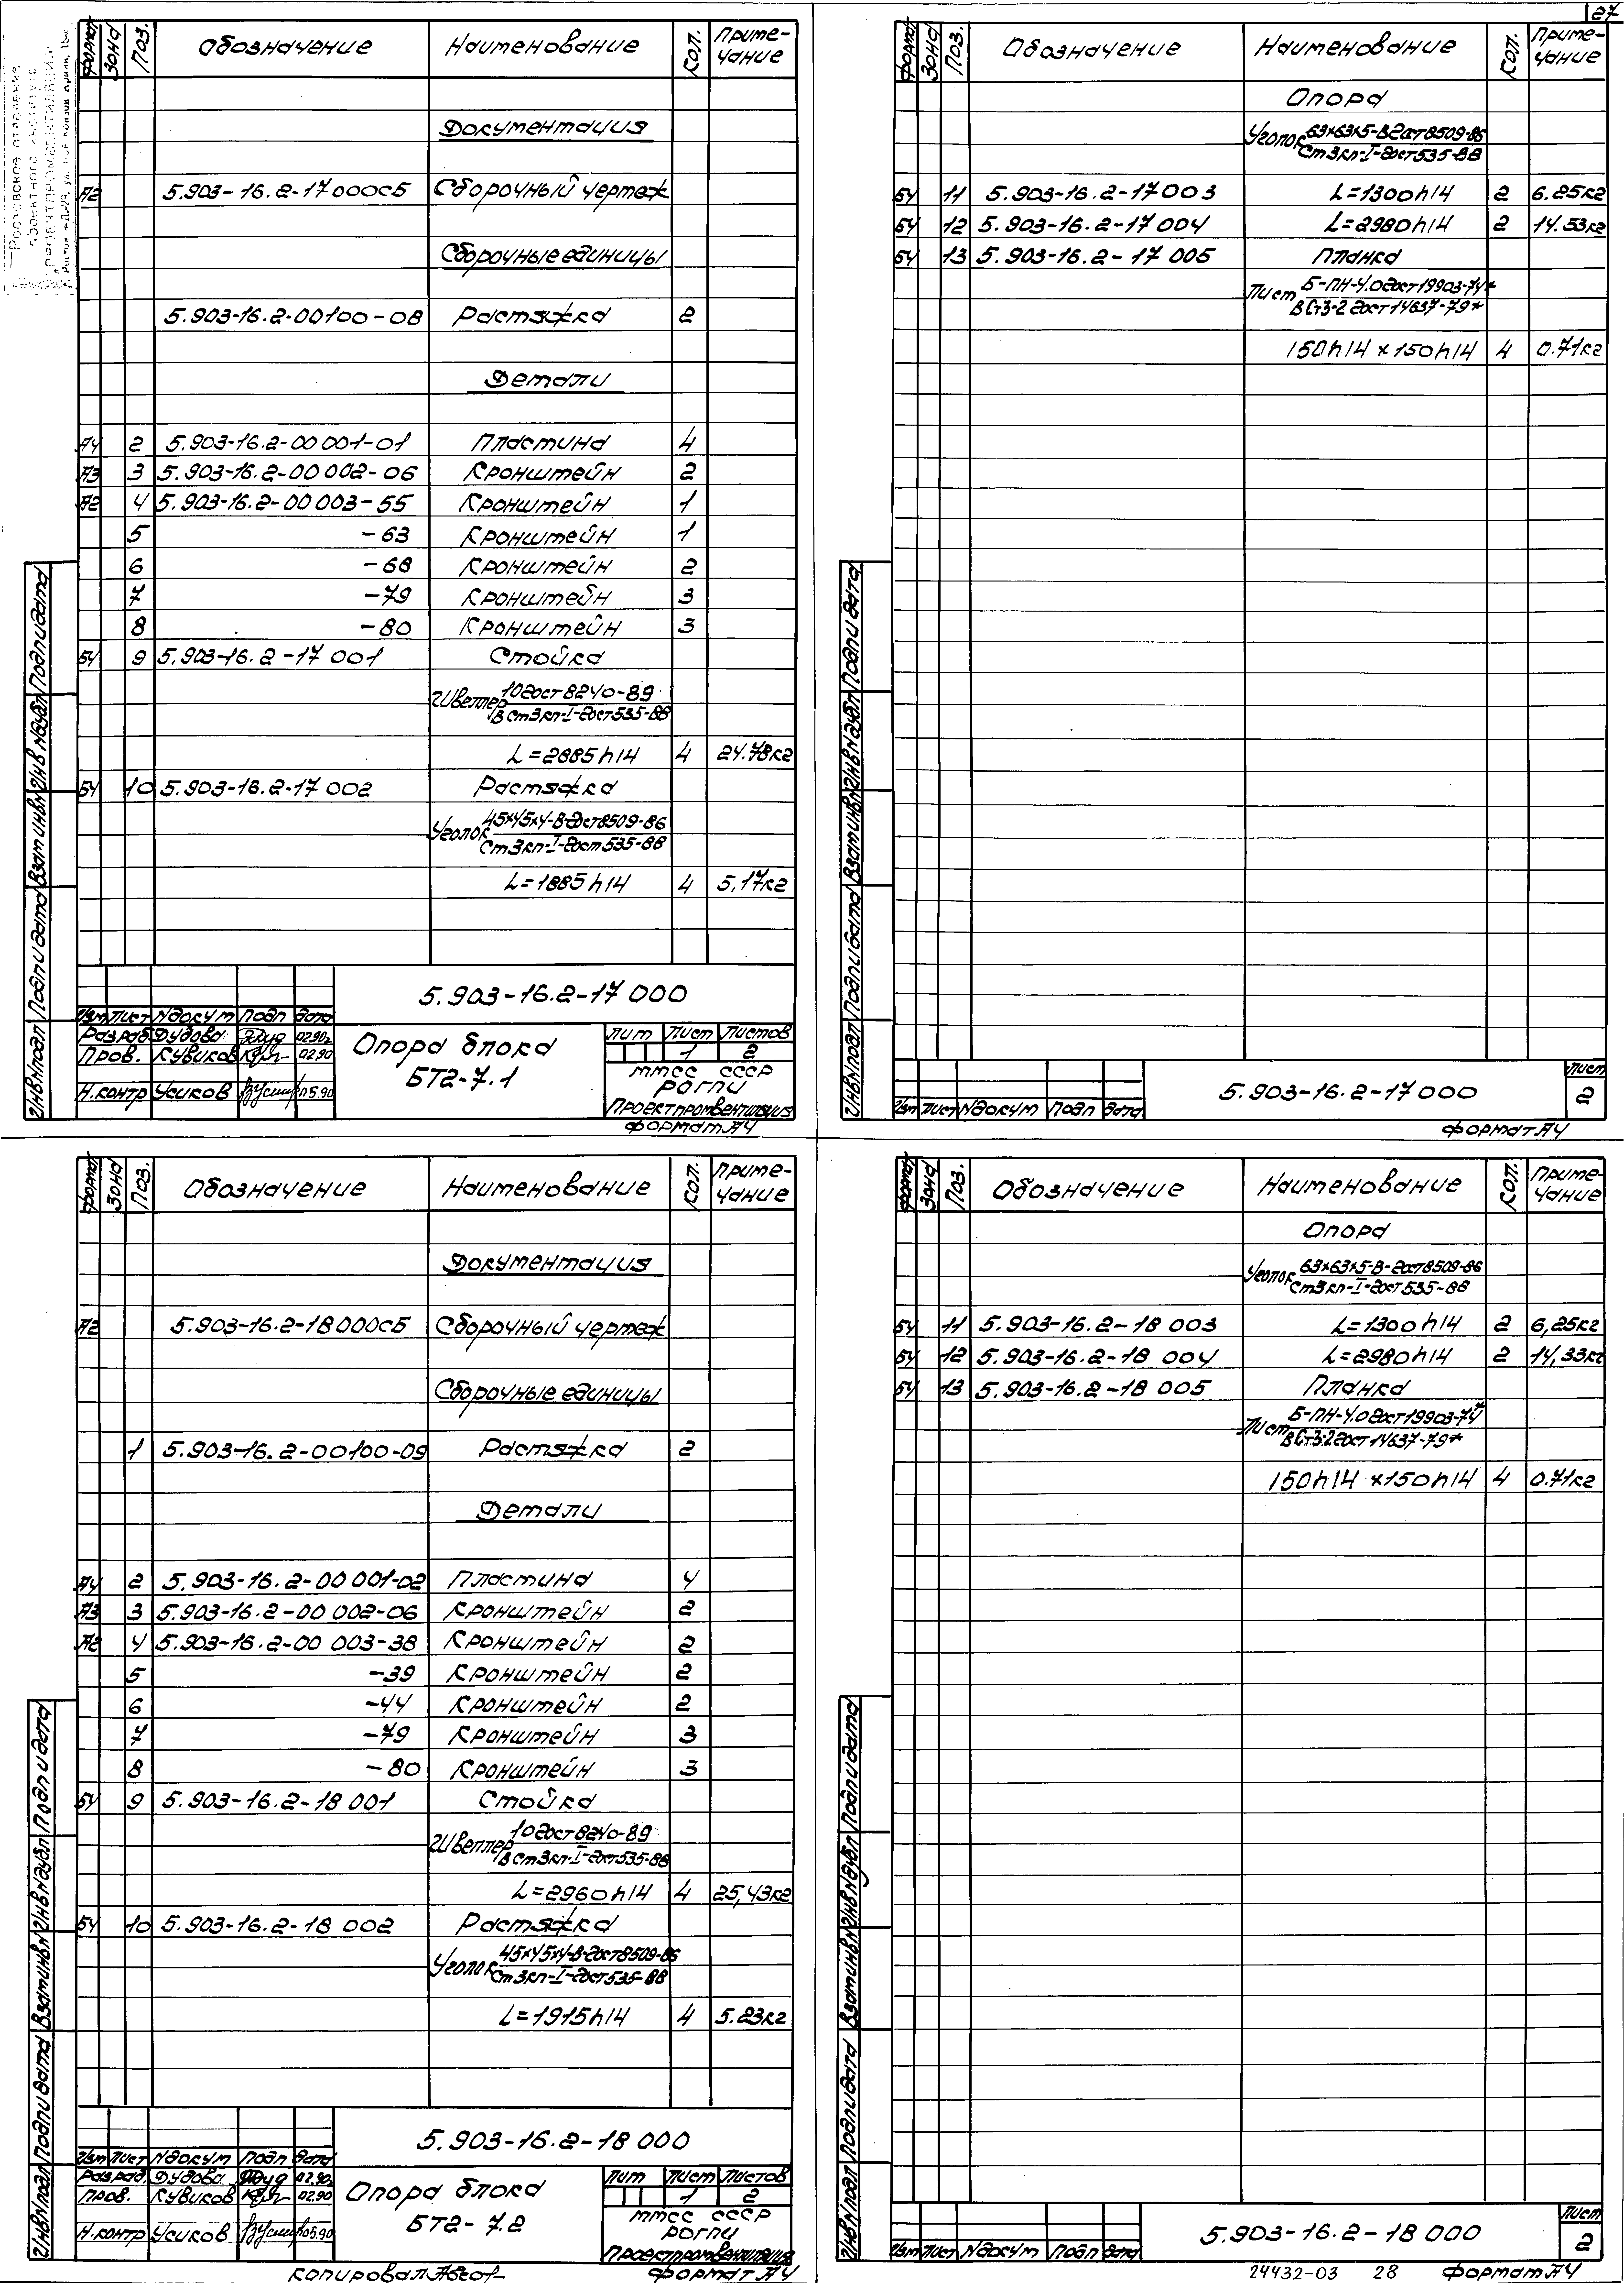 27
Формат Зона Поз. Обозначение Наименование Кол. Приме-чание
Документация
А2 5.903-16.2-17000СБ Сборочный чертеж
Сборочные единицы
5.903-16.2-00100-08 Растяжка 2
Детали
А4 2 5.903-16.2-00 001-01 Пластина 4
А3 3 5.903-16.2-00 002-06 Кронштейн 2
А2 4 5.903-16.2-00 003-55 Кронштейн 1
5 -63 Кронштейн 1
6 -68 Кронштейн 2
7 -79 Кронштейн 3
8 -80 Кронштейн 3
БЧ 9 5.903-16.2-17 001 Стойка
Швеллер 10 ГОСТ 8240-89
ВСт3кп-I-ГОСТ 535-88
L=2885h14 4 24.78кг
БЧ 10 5.903-16.2-17 002 Растяжка
Уголок 45х45х4-В-ГОСТ 8509-86
Ст3кп-I-ГОСТ 535-88
L=1885h14 4 5,17кг
5.903-16.2-17 000
Изм Лист №докум Подп Дата
Разраб Дудова 02.90
Пров. Кувиков 02.90
Н.контр Усиков 05.90
Опора блока
БТ2-7.1
Лит Лист Листов
1 2
ММСС СССР
РОГПИ
Проектпромвентиляция
Формат А4
Инв№подл Подп и дата Взам инв№ Инв№дубл Подп и дата
Формат Зона Поз. Обозначение Наименование Кол. Приме-чание
Опора
Уголок 63х63х5-В ГОСТ 8509-86
Ст3кп-I-ГОСТ 535-88
БЧ 11 5.903-16.2-17 003 L=1300h14 2 6.25кг
БЧ 12 5.903-16.2-17 004 L=2980h14 2 14.33кг
БЧ 13 5.903-16.2-17 005 Планка
Лист Б-ПН-4.0 ГОСТ 19903-74*
ВСт3-2 ГОСТ 14637-79*
150h14 х 150h14 4 0.71кг
Инв№подл Подп и дата Взам инв№ Инв№дубл Подп и дата
Изм Лист №докум Подп Дата
5.903-16.2-17 000
Лист
2
Формат А4
Формат Зона Поз. Обозначение Наименование Кол. Приме-чание
Документация
А2 5.903-16.2-18 000СБ Сборочный чертеж
Сборочные единицы
1 5.903-16.2-00100-09 Растяжка 2
Детали
А4 2 5.903-16.2-00 001-02 Пластина 4
А3 3 5.903-16.2-00 002-06 Кронштейн 2
А2 4 5.903-16.2-00 003-38 Кронштейн 2
5 -39 Кронштейн 2
6 -44 Кронштейн 2
7 -79 Кронштейн 3
8 -80 Кронштейн 3
БЧ 9 5.903-16.2-18 001 Стойка
Швеллер 10 ГОСТ 8240-89
ВСт3кп-I-ГОСТ 535-88
L=2960h14 4 25,43кг
БЧ 10 5.903-16.2-18 002 Растяжка
Уголок 45х45х4-В-ГОСТ 8509-86
Ст3кп-I-ГОСТ 535-88
L=1915h14 4 5.23кг
5.903-16.2-18 000
Изм Лист №докум Подп Дата
Разраб. Дудова 02.90
Пров. Кувиков 02.90
Н.контр Усиков 05.90
Опора блока
БТ2-7.2
Лит Лист Листов
1 2
ММСС СССР
РОГПИ
Проектпромвентиляция
Копировал
Формат А4
Инв№подл Подп и дата Взам инв№ Инв№дубл Подп и дата
Формат Зона Поз. Обозначение Наименование Кол. Приме-чание
Опора
Уголок 63х63х5-В-ГОСТ 8509-86
Ст3кп-I-ГОСТ 535-88
БЧ 11 5.903-16.2-18 003 L=1300h14 2 6,25кг
БЧ 12 5.903-16.2-18 004 L=2980h14 2 14,33кг
БЧ 13 5.903-16.2-18 005 Планка
Лист Б-ПН-4.0 ГОСТ 19903-74
ВСт3-2 ГОСТ 14637-79*
150h14 х150h14 4 0.71кг
Инв№подл Подп и дата Взам инв№ Инв№дубл Подп и дата
Изм Лист №докум Подп Дата
5.903-16.2-18 000
Лист
2
24432-03 28 Формат А4